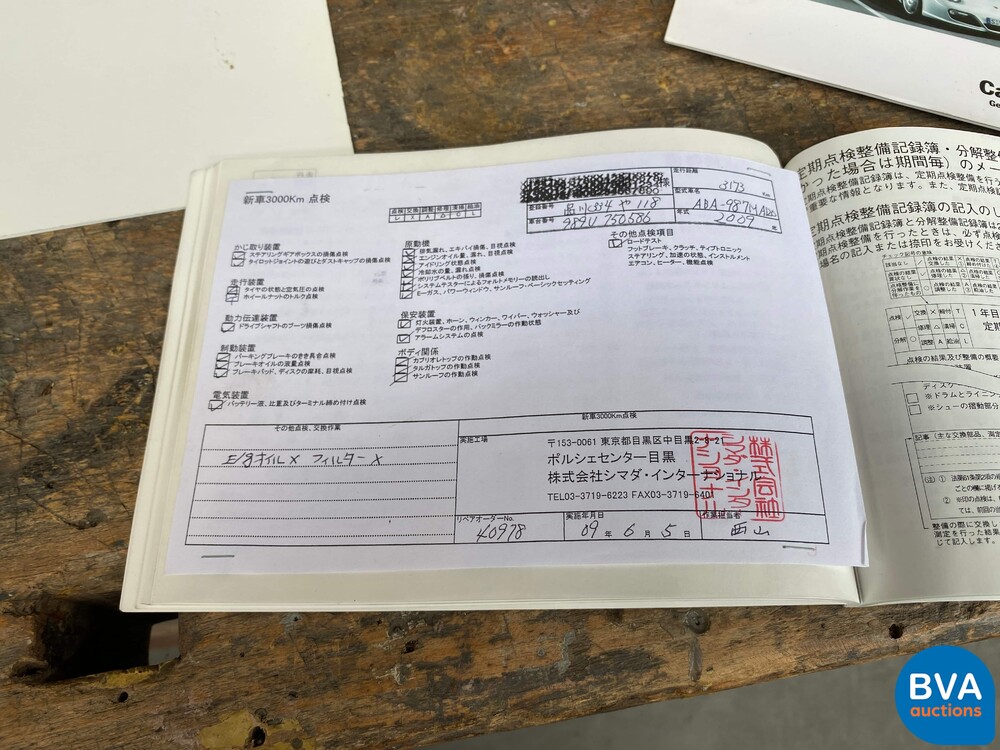 新車3000Km 点検
点検 交換 調整 修理 清掃 給油
レ X A △ C L
様
走行距離
3173 Km
登録番号
品川 334 や 118
型式車名
ABA-987MA
車台番号
年式
2009 年
かじ取り装置
ステアリングギアボックスの損傷点検
タイロットジョイントの遊びとダストキャップの損傷点検
走行装置
タイヤの状態と空気圧の点検
ホイールナットのトルク点検
動力伝達装置
ドライブシャフトのブーツ損傷点検
制動装置
パーキングブレーキのきき具合点検
ブレーキオイルの液量点検
ブレーキパッド、ディスクの摩耗、目視点検
電気装置
バッテリー液、比重及びターミナル締め付け点検
原動機
排気漏れ、エキパイ損傷、目視点検
エンジンオイル量、漏れ、目視点検
アイドリング状態点検
冷却水の量、漏れ点検
ポリリブベルトの張り、損傷点検
システムテスターによるフォルトメモリーの読出し
E-ガス、パワーウィンドウ、サンルーフ・ベーシックセッティング
保安装置
灯火装置、ホーン、ウィンカー、ワイパー、ウォッシャー及び
デフロスターの作用、バックミラーの作動状態
アラームシステムの点検
ボディ関係
カブリオレトップの作動点検
タルガトップの作動点検
サンルーフの作動点検
その他点検項目
ロードテスト
フットブレーキ、クラッチ、ティプトロニック
ステアリング、加速の状態、インストルメント
エアコン、ヒーター、機能点検
新車3000Km点検
その他点検、交換作業
E/gオイル X フィルター X
実施工場
〒153-0061 東京都目黒区中目黒2-8-21
ポルシェセンター目黒
株式会社シマダ・インターナショナル
TEL03-3719-6223 FAX03-3719-6401
株式会社
シマダインターナショナル
リペアオーダーNo.
40978
実施年月日
09 年 6 月 5 日
作業担当者
西山
定期点検整備記録簿・分解整
かった場合は期間毎)のメ
定期点検整備記録簿の記入の
1年目
定期
点検の結果及び整備の概要
ディスク
※ドラムとライニ
※シューの摺動部分
記事 (主な交換部品、測定
整備の際に交換し
測定を行った結果
じて記入します。
Ca
Ge
BVA
auctions